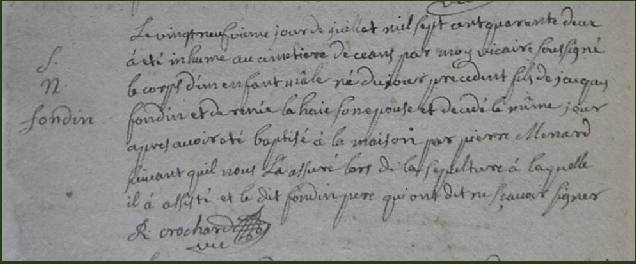 Le vingtneufvieme jour de juillet mil sept cent quarente deux
S. à été inhumé au cimetiere de ceans par moy vicaire soussigné
N. le corps d'un enfant mâle né du jour precedent fils de jacques
fondin fondin et de renée la haie son epouse et decedé le même jour
apres avoir eté baptisé à la maison par pierre Menard
suivant quil nous l'a assuré lors de la sepulture à laquelle
il a assisté et le dit fondin pere qui ont dit ne sçavoir signer
R. crochard
vic